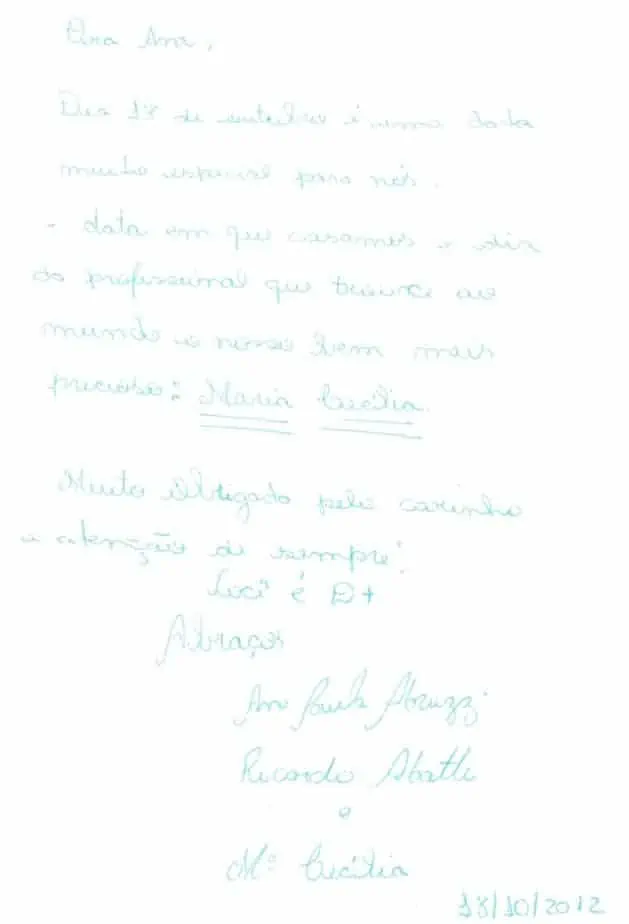 Dra Ana,
Dia 18 de outubro é uma data
muito especial para nós.
- data em que casamos e dia
do profissional que trouxe ao
mundo o nosso bem mais
precioso: Maria Cecília.
Muito Obrigado pelo carinho
e atenção de sempre!
Você é D+
Abraços
Ana Paula Abruzzi
Ricardo
e
Mª Cecília
18/10/2012